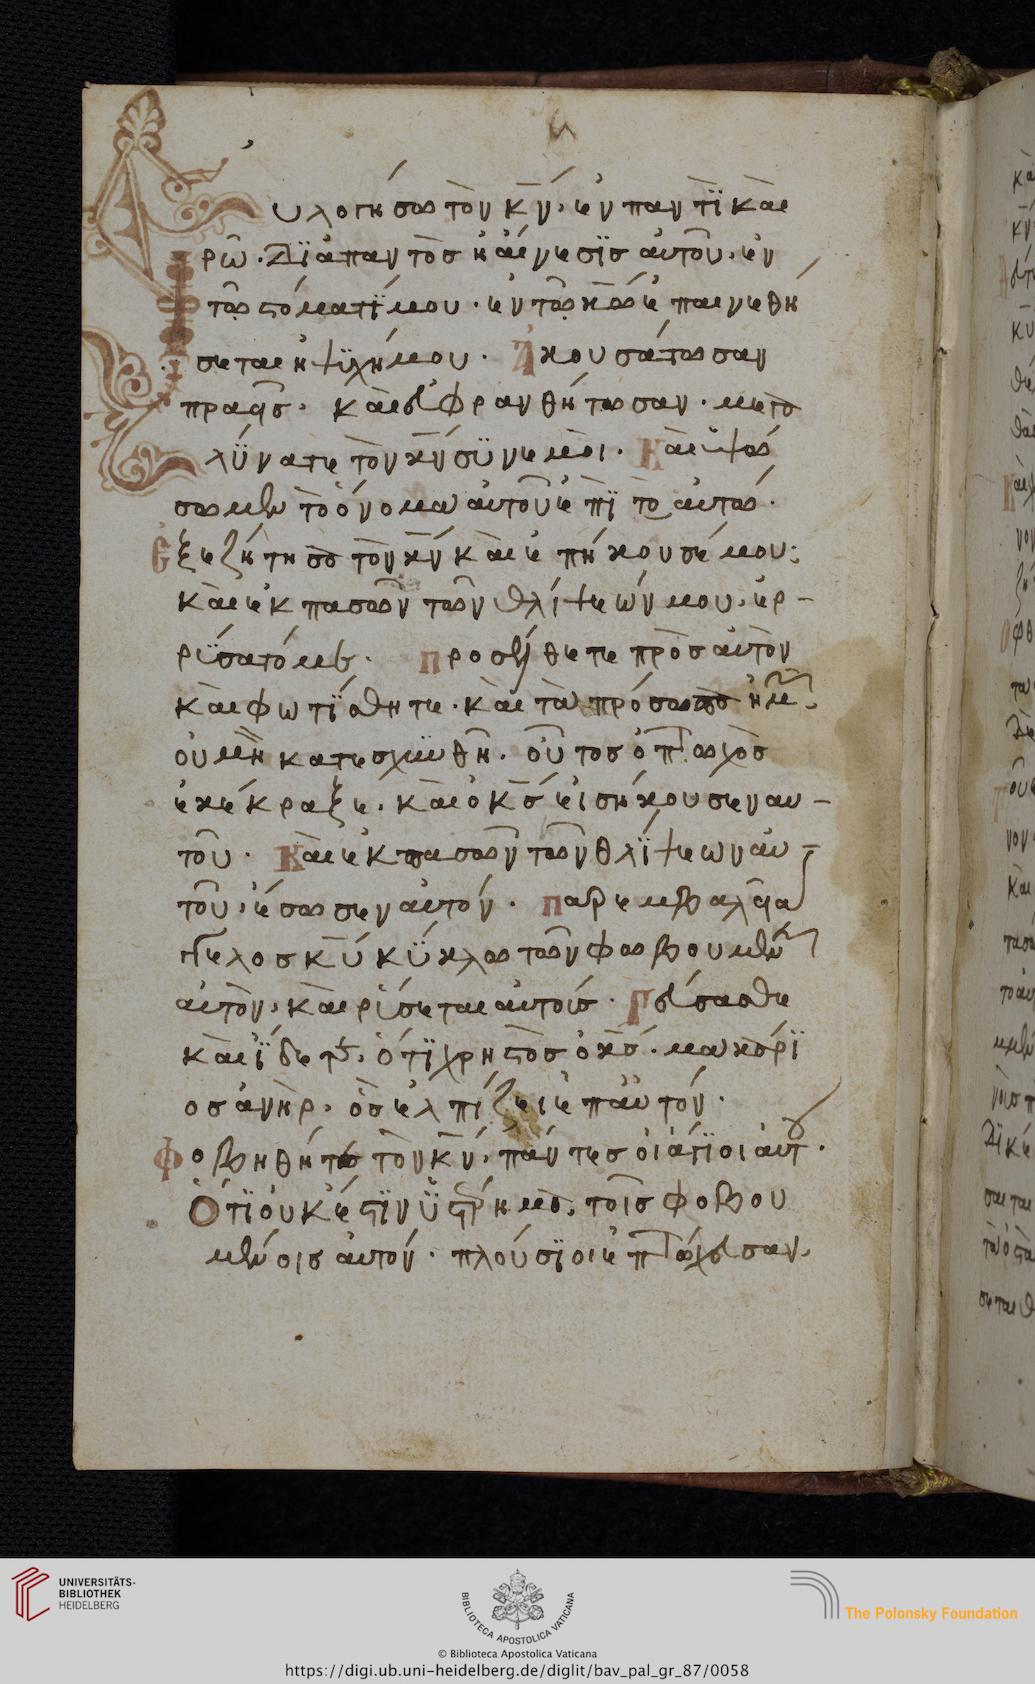 Ευλογήσω τὸν κν̄, ἐν παντὶ και
ρῶ. Διὰ παντὸσ ἡ αἴνεσϊσ αὐτοῦ, ἐν
τῶ στόματί μου. ἐν τῶ κῶ ἐπαινεθή
σεται ἡ ψϊχή μου. Ἀκουσάτωσαν
πραεῖσ. καὶ εὐφρανθήτωσαν. μεγα
λΰνατε τὸν κν̄ σϋν ἐμοί. Καὶ ὑψώ
σωμεν τὸ ὄνομα αὐτοῦ ἐπὶ τὸ αὐτώ.
Ἐξεζήτησα τὸν κν̄ καὶ ἐπήκουσέ μου:
καὶ ἐκ πασῶν τῶν θλίψεών μου, ἐρ-
ρΐσατό με. προσέλθετε πρὸσ αὐτὸν
καὶ φωτΐσθητε. καὶ τὰ πρόσωπα ἡμῶν
οὐ μὴ κατεσχυνθῆ. οὗτοσ ὁ πτωχὸσ
ἐκέκραξε. καὶ ὁ κσ̄ εἰσήκουσεν αυ-
τοῦ. Καὶ ἐκ πασῶν τῶν θλΐψεων αὐ-
τοῦ, ἔσωσεν αὐτόν. παρεμβαλεῖ ἄγ
γελοσ κῡ κΰκλω τῶν φωβουμένων
αὐτὸν, καὶ ρύσεται αὐτούσ. Γεύσασθε
καὶ ἴδετε, ὅτϊ χρηστὸσ ὁ κσ̄. μακάρϊ
οσ ἀνὴρ, ὃσ ἐλπίζει ἐπ' αὐτόν.
Φοβηθήτε τὸν κν̄, πάντεσ οἱ ἅγϊοι αὐτοῦ.
Ὅτϊ οὐκ ἔστϊν ὑστέρημα, τοῖσ φοβου
μένοισ αὐτόν. πλούσϊοι ἐπτώχευσαν,
UNIVERSITÄTS-
BIBLIOTHEK
HEIDELBERG
BIBLIOTECA APOSTOLICA VATICANA
The Polonsky Foundation
© Biblioteca Apostolica Vaticana
https://digi.ub.uni-heidelberg.de/diglit/bav_pal_gr_87/0058